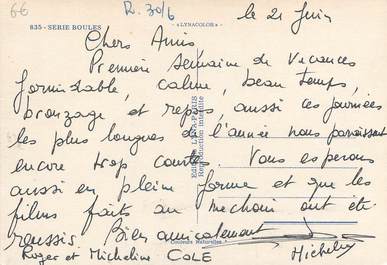 66
R. 30/6
le 21 Juin
835 - SERIE BOULES
«LYNACOLOR»
Chers Amis
Première semaine de vacances
formidable, calme, beau temps,
bronzage et repos, aussi ces journées
les plus longues de l'année nous paraissent
encore trop courtes. Vous esperons
aussi en pleine forme et que les
films faits au mechoui ont été
reussis. Bien amicalement
Roger et Micheline COLE
Micheline
Editions LYNA-PARIS
Reproduction interdite
Couleurs Naturelles